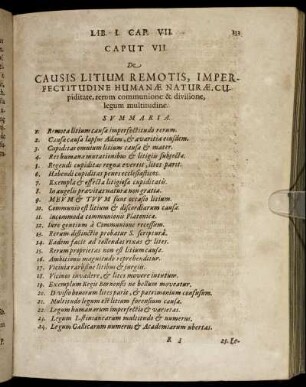 LIB. I. CAP. VII.
CAPUT VII.
De
CAUSIS LITIUM REMOTIS, IMPER-
FECTITUDINE HUMANÆ NATURÆ, CU-
piditate, rerum communione & divisione,
legum multitudine.
SVMMARIA.
1. Remota litium causa imperfectitudo rerum.
2. Causa causæ lapsus Adami, & avaritia ejusdem.
3. Cupiditas omnium litium causa & mater.
4. Res humanæ mutationibus & litigiis subjectæ.
5. Regendi cupiditas regna evertit, lites parit.
6. Habendi cupiditas pestis ecclesiasticis.
7. Exempla & effecta litigiosæ cupiditatis.
8. In angelis pravitas naturæ non gratiæ.
9. MEVM & TVVM sunt occasio litium.
10. Communio est litium & discordiarum causa.
11. incommoda communionis Platonicæ.
12. Iure gentium à Communione recessum.
13. Rerum distinctio probatur S. scriptura.
14. Eadem facit ad tollendas rixas & lites.
15. Rerum proprietas non est litium causa.
16. Ambitiosus magistratus reprehenditur.
17. Vicinitas rixis lite litibus & jurgiis.
18. Vicinos invadere, & lites movere invitum.
19. Exemplum Regis
20. Divisio bonorum lites parit, & patrimonium confusum.
21. Multitudo legum est litium forensium causa.
22. Legum humanarum imperfectio & varietas.
23. Legum Iustinianearum multitudo & numerus.
24. Legum Gallicarum numerus & Academiarum ubertas.
25. Le-